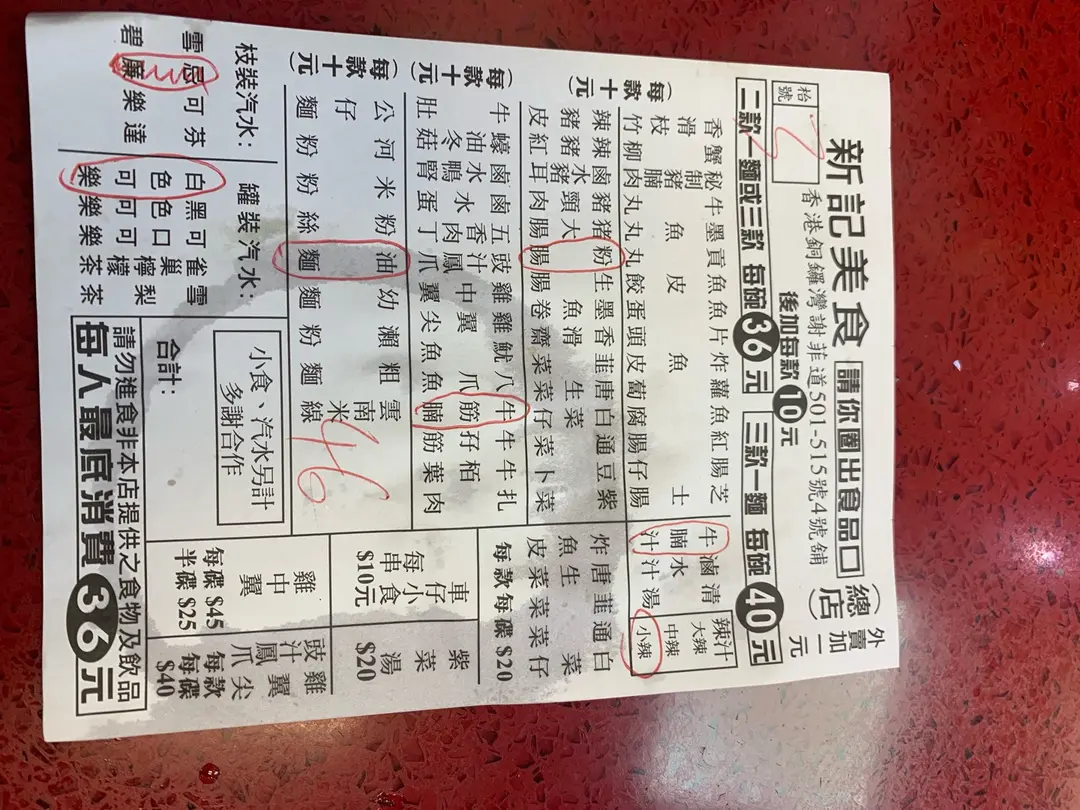 新記美食
請你圈出食品口
(總店)
外賣加一元
枱號
3
香港銅鑼灣謝菲道501-515號4號舖
後加每款10元
二款一麵或三款 每碗36元
三款一麵 每碗40元
(每款十元)
香滑枝竹 蟹柳 秘制豬腩肉 牛丸 墨丸 貢丸 魚皮餃 魚蛋 魚片頭 炸魚皮 蘿蔔 魚腐 紅腸 腸仔 芝士腸
牛腩汁 鹵水汁 清湯
辣汁
大辣
中辣
小辣
(每款十元)
辣豬皮 辣豬紅 鹵水豬耳 豬頸肉 豬大腸 粉腸 生腸 墨魚卷 香滑齋 韮菜 唐生菜 白菜仔 通菜 豆卜 紫菜
炸魚皮 唐生菜 韮菜 通菜 白菜仔
每款每碟 $20
(每款十元)
牛肚 蠔油冬菇 鹵水鴨腎 鹵水蛋 五香肉丁 豉汁鳳爪 雞中翼 雞翼尖 魷魚 八爪魚 牛腩 牛筋 牛孖筋 牛栢葉 扎肉
車仔小食
每串 $10元
紫菜湯
$20
(每款十元)
公仔麵 河粉 米粉 粉絲 油麵 幼麵 瀨粉 粗麵 雲南米線
46
雞中翼
每碟 $45
半碟 $25
雞翼尖
豉汁鳳爪
每款每碟 $40
枝裝汽水:
雪碧 忌廉 可樂 芬達
罐裝汽水:
白色可樂 黑色可樂 可口可樂 雀巢檸檬茶 雪梨茶
小食、汽水另計
多謝合作
合計:
請勿進食非本店提供之食物及飲品
每人最底消費36元